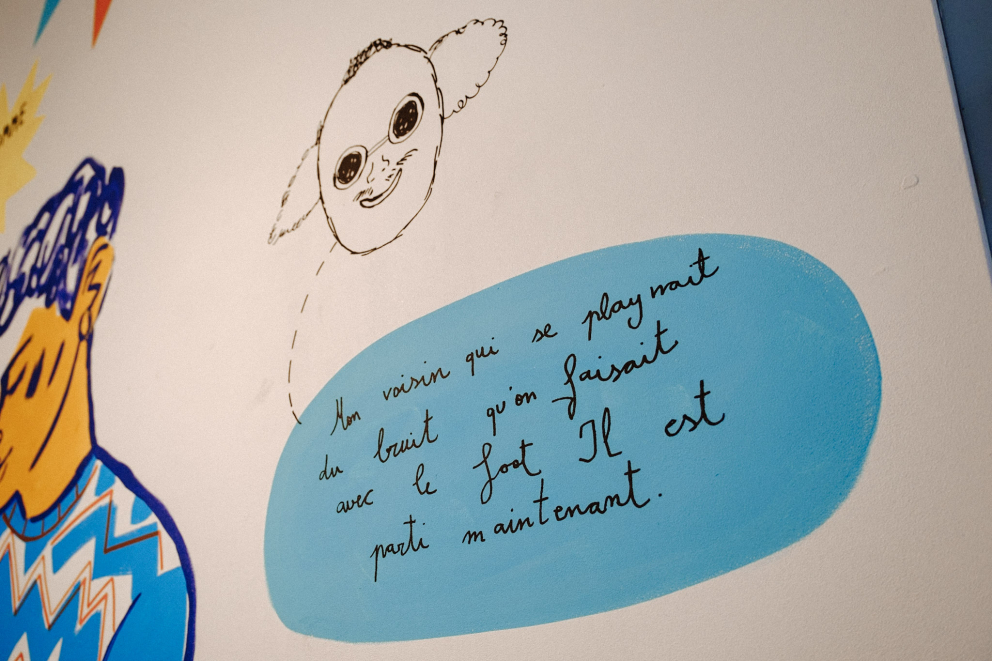 Mon voisin qui se playnait
du bruit qu'on faisait
avec le foot Il est
parti maintenant.